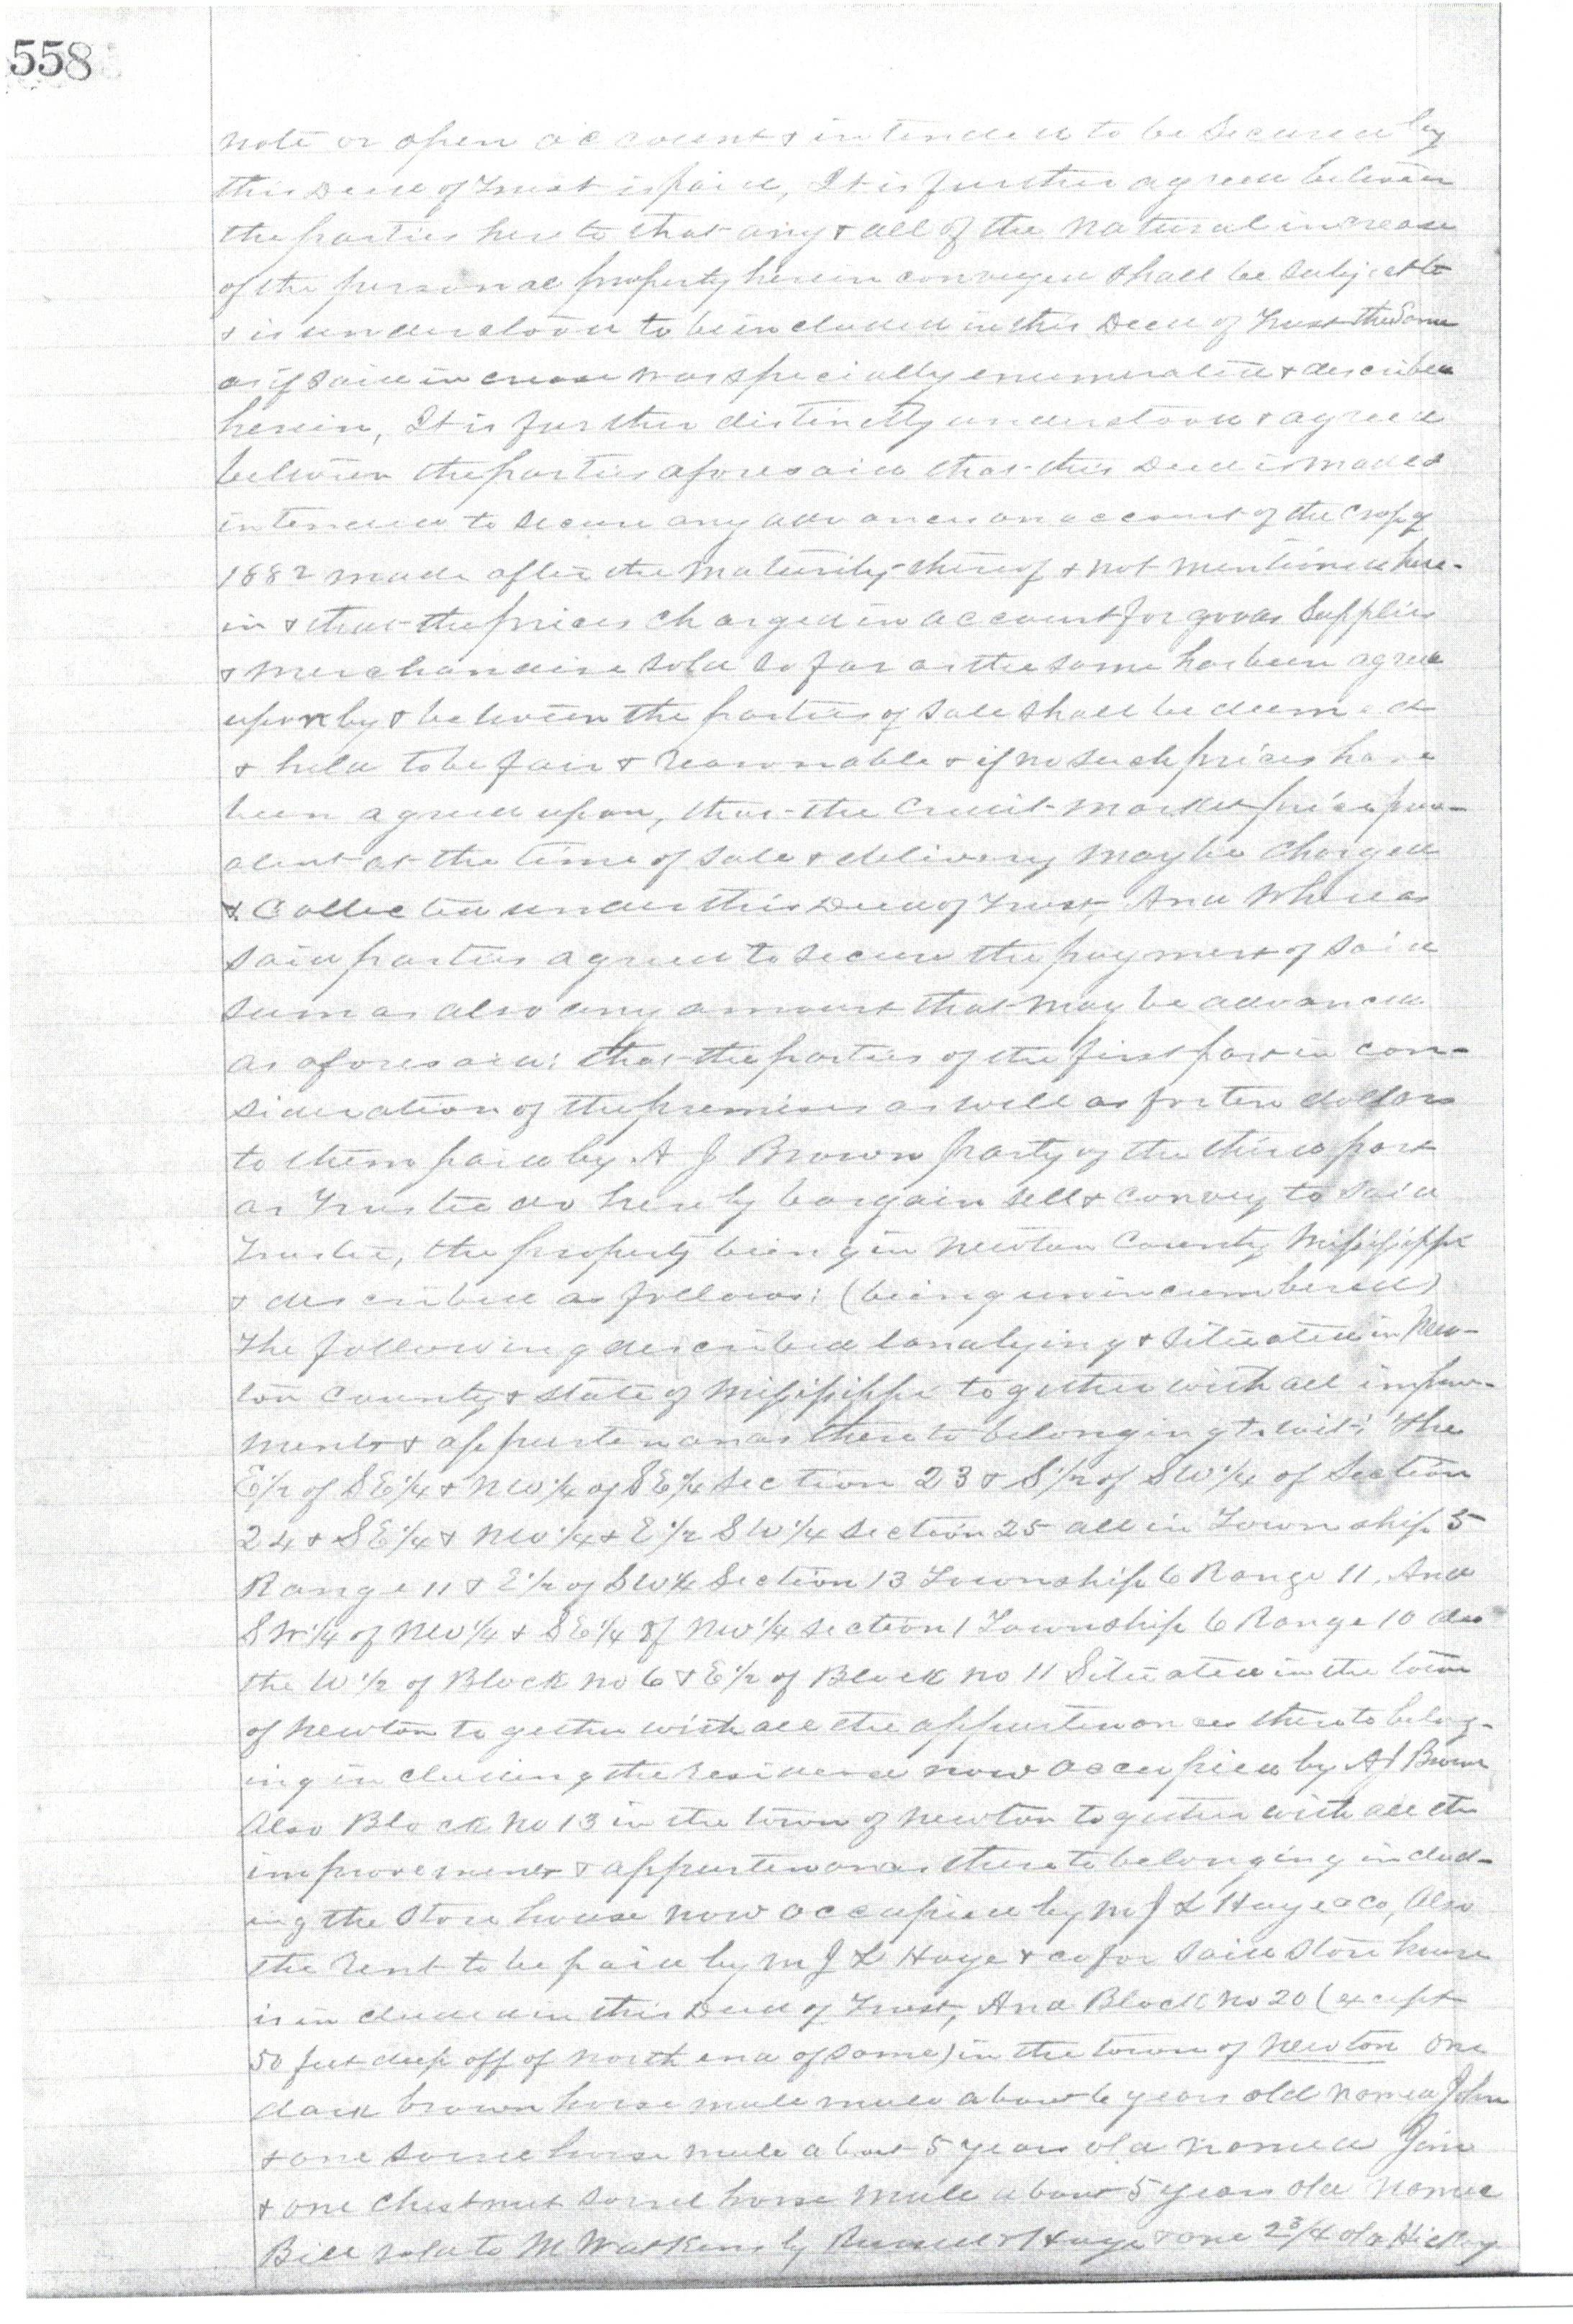 558
note or open account & intended to be secured by
this Deed of Trust is paid, It is further agreed between
the parties hereto that any & all of the natural increase
of the personal property herein conveyed shall be subject to
& is understood to be included in this Deed of Trust the same
as if said increase was specially enumerated & described
herein, It is further distinctly understood & agreed
between the parties aforesaid that this Deed is made &
intended to secure any advances on account of the crop of
1882 made after the maturity thereof & not mentioned here-
in & that the prices charged in account for goods supplies
& merchandise sold so far as the same has been agreed
upon by & between the parties of sale shall be deemed
& held to be fair & reasonable & if no such prices have
been agreed upon, that the credit market price prev-
alent at the time of sale & delivery may be charged
& collected under this Deed of Trust, And Whereas
said parties agreed to secure the payment of said
sum as also any amount that may be advanced
as aforesaid: that the parties of the first part in con-
sideration of the premises as well as for ten dollars
to them paid by A J Brown party of the third part
as Trustee do hereby bargain sell & convey to said
Trustee, the property being in Newton County Mississippi
& described as follows: (being unincumbered)
The following described land lying & situated in New-
ton County & State of Mississippi together with all improve-
ments & appurtenances thereto belonging to wit: The
E 1/2 of SE 1/4 & NW 1/4 of SE 1/4 Section 23 & S 1/2 of SW 1/4 of Section
24 & SE 1/4 & NW 1/4 & E 1/2 SW 1/4 Section 25 all in Township 5
Range 11 & E 1/2 of SW 1/4 Section 13 Township 6 Range 11, And
SW 1/4 of NW 1/4 & SE 1/4 of NW 1/4 Section 1 Township 6 Range 10 also
the W 1/2 of Block No 6 & E 1/2 of Block No 11 Situated in the town
of Newton together with all the appurtenances thereto belong-
ing including the residence now occupied by A J Brown
Also Block No 13 in the town of Newton together with all the
improvements & appurtenances thereto belonging includ-
ing the Store house now occupied by M J L Hoye & Co, Also
the Rent to be paid by M J L Hoye & co for said store house
is included in this Deed of Trust, And Block No 20 (except
50 feet deep off of north end of same) in the town of Newton One
dark brown horse mule mule about 6 years old named John
& one sorrel horse mule about 5 years old named Jim
& one chestnut sorrel horse mule about 5 years old named
Bill sold to M Watkins by & Hoye & one 2 3/4 old Hickory